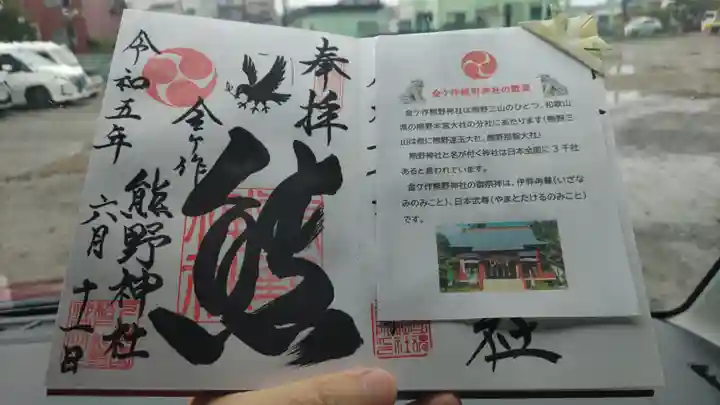 奉拝
金ケ作
熊
熊野神社
令和五年
六月
十一日
金ケ作熊野神社の歴史
金ケ作熊野神社は熊野三山のひとつ、和歌山
県の熊野本宮大社の分社にあたります(熊野三
山は他に熊野速玉大社、熊野那智大社)
熊野神社と名が付く神社は日本全国に3千社
あると言われています。
金ケ作熊野神社の御祭神は、伊弉冉尊(いざな
みのみこと)、日本武尊(やまとたけるのみこと)
です。
社